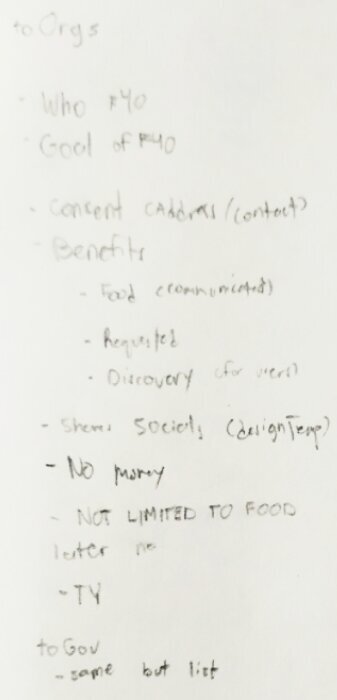 to Orgs
- Who F40
- Goal of F40
- Consent (Address/contact)
- Benefits
- Food (communicated)
- Requested
- Discovery (for users)
- Shares Socials (designTemp)
- No money
- NOT LIMITED TO FOOD
later
- TY
to Gov
- same but list